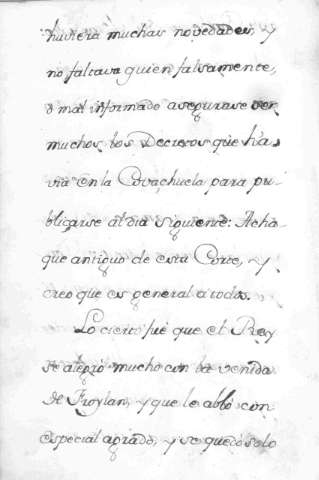 huviera muchas novedades, y
no faltava quien falsamente,
ò mal informado asegurase ser
muchos los Decretos que ha-
via en la Covachuela para pu-
blicarse al dia siguiente: Acha-
que antiguo de esta Corte, y
creo que es general a todos.
Lo cierto fué que el Rey
se alegró mucho con la venida
de Froylan, y que le abló con
especial agrado, y se quedó solo